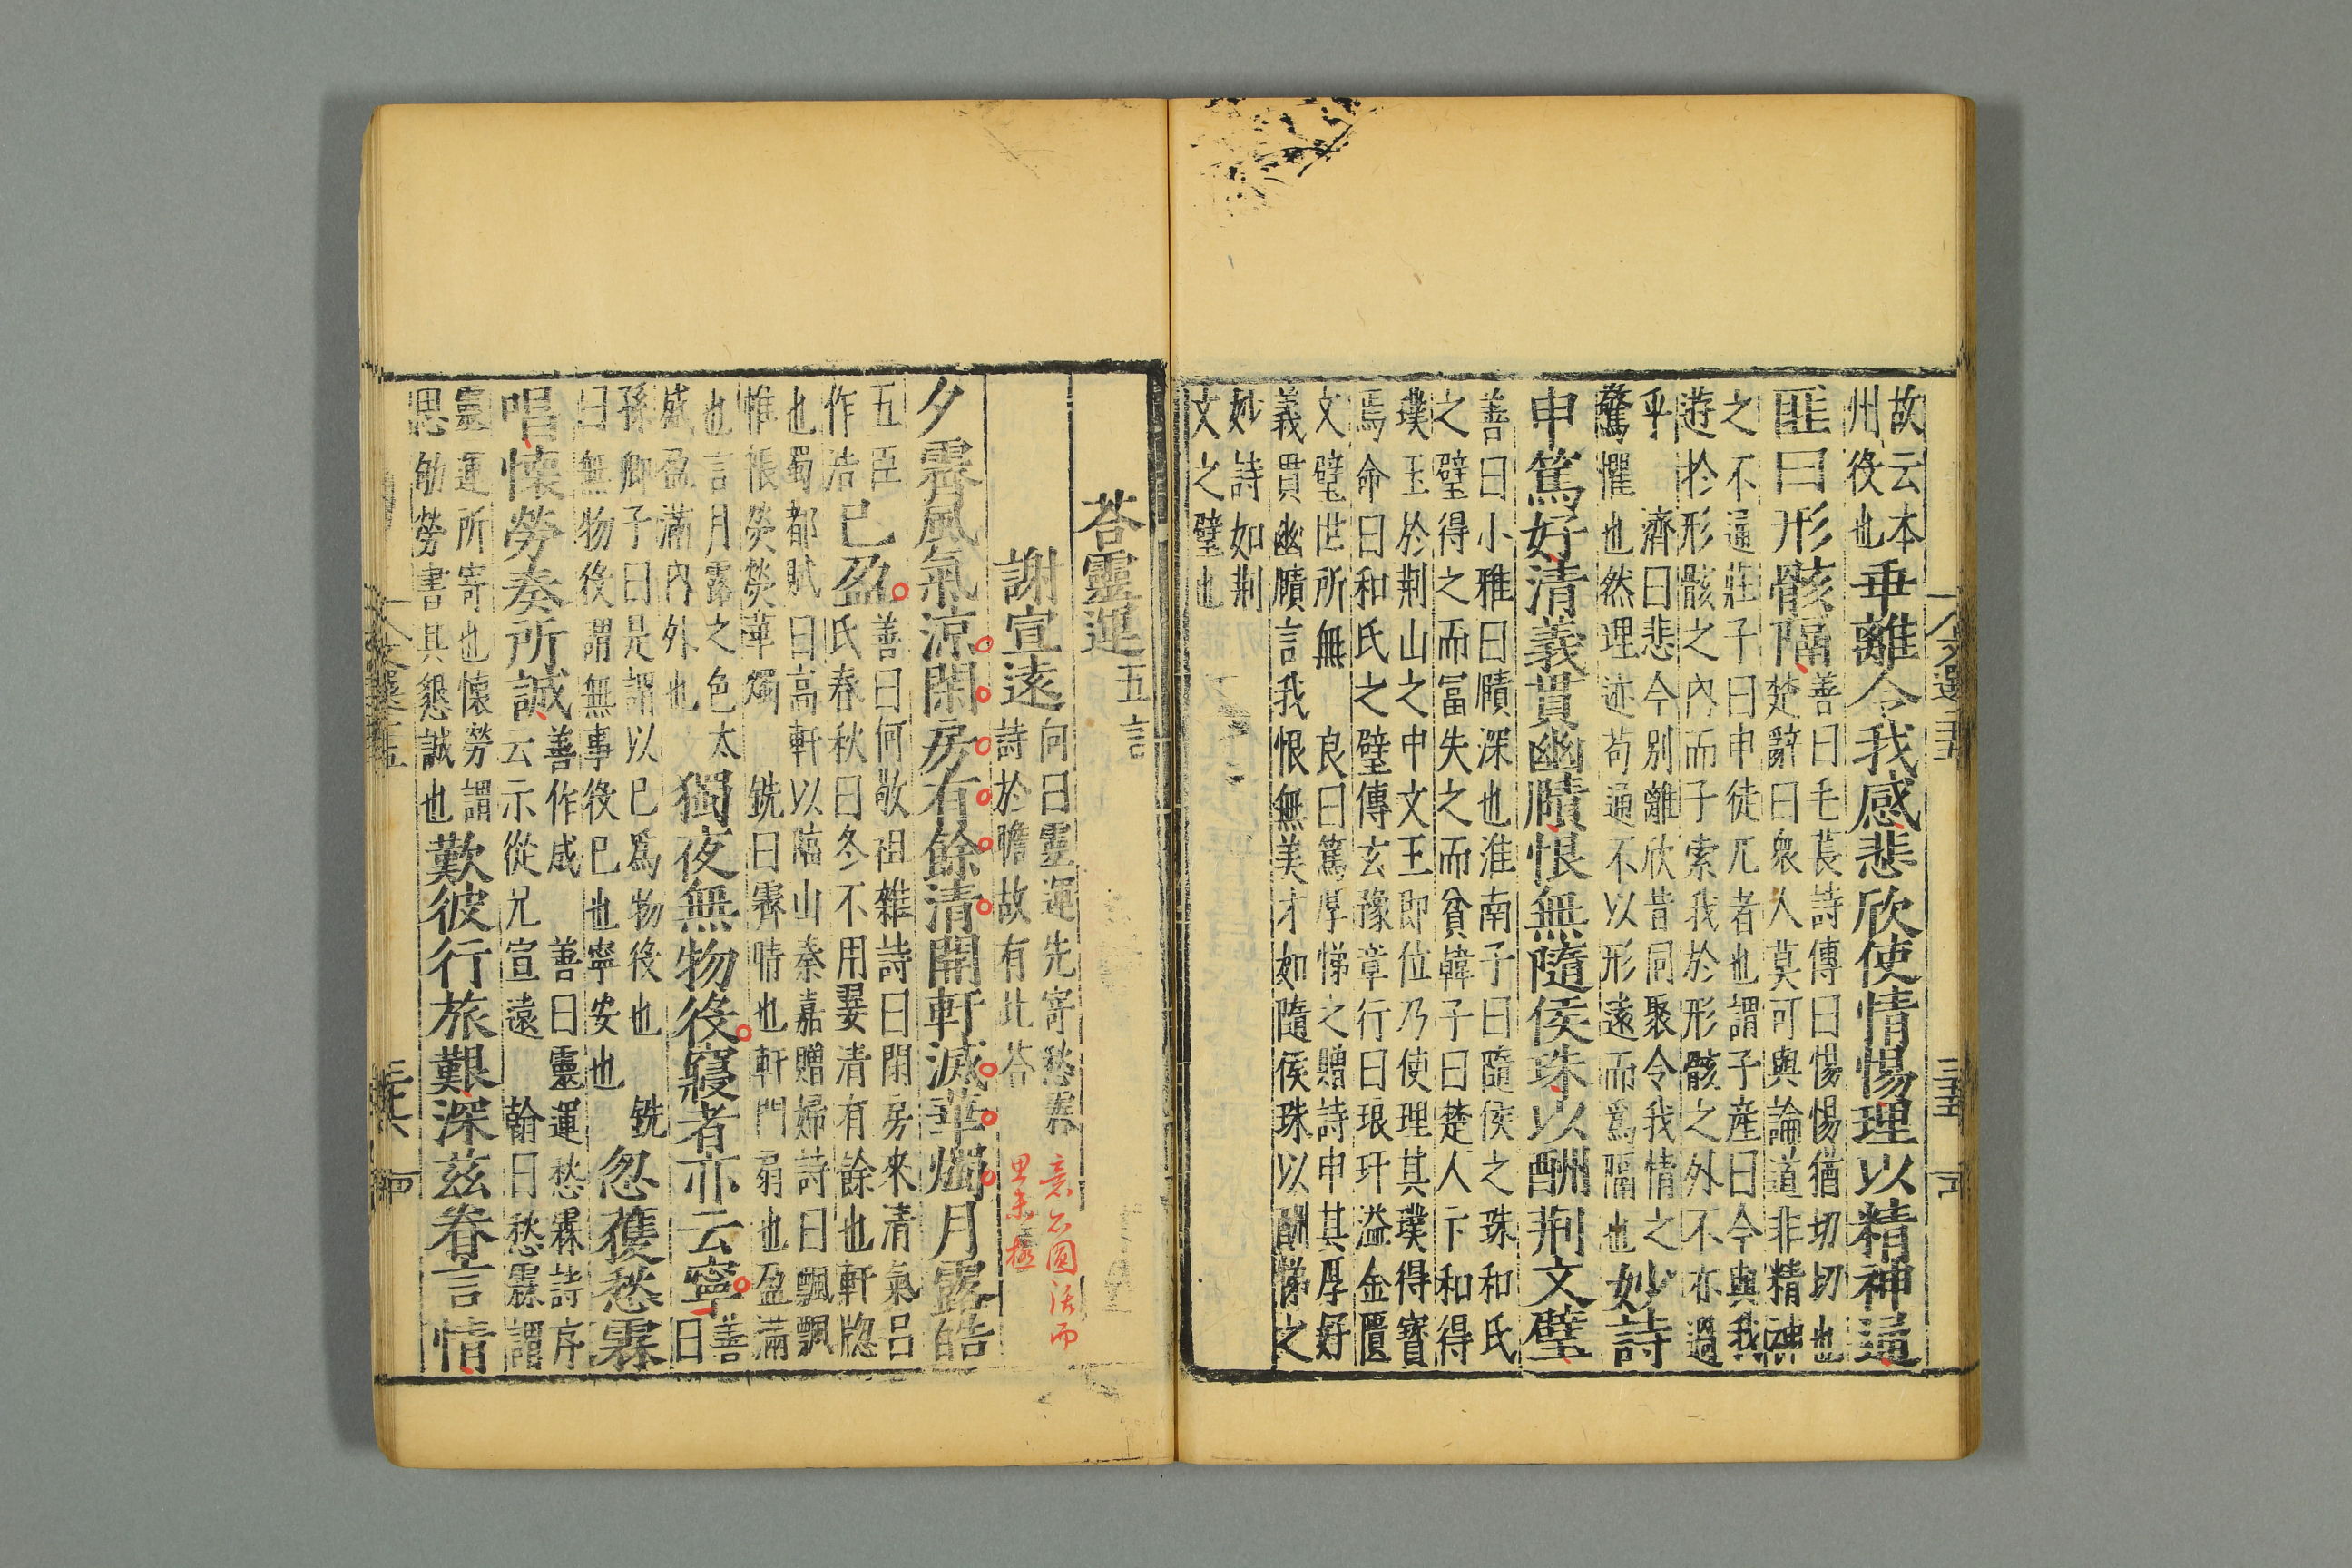 故云本
州役也
乖離令我感悲欣使情惕理以精神逼
匪曰形骸隔
善曰毛萇詩傳曰惕惕猶切切也
楚辭曰衆人莫可與論道非精神
之不逼莊子曰申徒兀者也謂子產曰今與我
遊於形骸之內而子索我於形骸之外不亦過
乎 濟曰悲今别離欣昔同聚令我情之
驚懼也然理迹苟通不以形遠而爲隔也
妙詩
申篤好清義貫幽賾恨無隨侯珠以酬荆文璧
善曰小雅曰賾深也淮南子曰隨侯之珠和氏
之璧得之而冨失之而貧韓子曰楚人卞和得
璞玉於荆山之中文王即位乃使理其璞得寳
焉命曰和氏之璧傳玄豫章行曰琅玕溢金匱
文璧世所無 良曰篤厚悌之贈詩申其厚好
義貫幽賾言我恨無美才如隨侯珠以酬悌之
妙詩如荆
文之璧也
荅靈運 五言
謝宣遠
向曰靈運先寄愁霖
詩於瞻故有此荅
意亦圓活而
里未極
夕霽風氣凉閑房有餘清開軒滅華燭月露皓
五臣
作浩
已盈
善曰何敬祖雜詩曰閑房來清氣呂
氏春秋曰冬不用翣清有餘也軒牎
也蜀都賦曰高軒以臨山秦嘉贈婦詩曰飄飄
惟帳熒熒華燭 銑曰霽晴也軒門扇也盈滿
也言月露之色太
盛盈滿內外也
獨夜無物役寢者亦云寧
善
曰
孫卿子曰是謂以已爲物役也 銑
曰無物役謂無事役已也寧安也
忽獲愁霖
唱懷勞奏所誠
善作成 善曰靈運愁霖詩序
云示從兄宣遠 翰曰愁霖謂
靈運所寄也懷勞謂
思劬勞書其懇誠也
歎彼行旅艱深兹眷言情